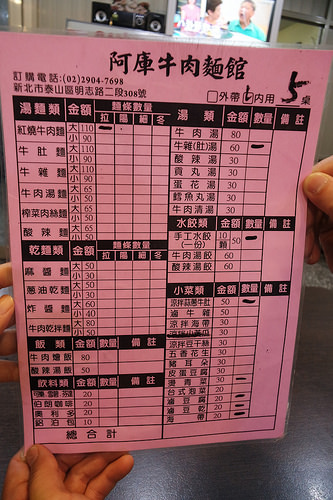 阿庫牛肉麵館
訂購電話:(02)2904-7698
新北市泰山區明志路二段308號
□外帶 內用 5 桌
湯麵類 金額 麵條數量
拉 陽 細 冬
紅燒牛肉麵 大 110 小 90
牛肚麵 大 110 小 90
牛雜麵 大 110 小 90
牛肉湯麵 大 65 小 50
榨菜肉絲麵 大 65 小 50
酸辣麵 大 65 小 50
乾麵類 金額 麵條數量
拉 陽 細 冬
麻醬麵 大 50 小
蔥油乾麵 大 小 30
炸醬麵 大 60 小 40
牛肉乾拌麵 大 80 小 50
飯類 金額 數量 備註
牛肉燴飯 80
酸辣湯飯 50
飲料類 金額 數量 備註
20
伯朗咖啡 20
奧利多 20
鋁泊包 10
總合計
湯類 金額 數量 備註
牛肉湯 80
牛雜(肚)湯 60
酸辣湯 30
貢丸湯 30
蛋花湯 30
鱈魚丸湯 30
牛肉清湯 30
水餃類 金額 數量 備註
手工水餃(一份) 10顆 50
牛肉湯餃 60
酸辣湯餃 60
小菜類 金額 數量 備註
涼拌蒜蔥牛肚 50
滷牛雜 50
涼拌海帶 30
涼拌小黃瓜 30
涼拌豆干絲 30
五香花生 30
豬耳朵 30
皮蛋豆腐 30
燙青菜 30
台式泡菜 20
滷豆腐 20
滷豆乾 20
海帶 20